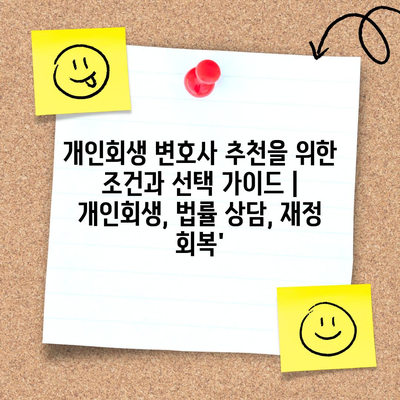 개인회생 변호사 추천을 위한
조건과 선택 가이드 |
개인회생, 법률 상담, 재정
회복'